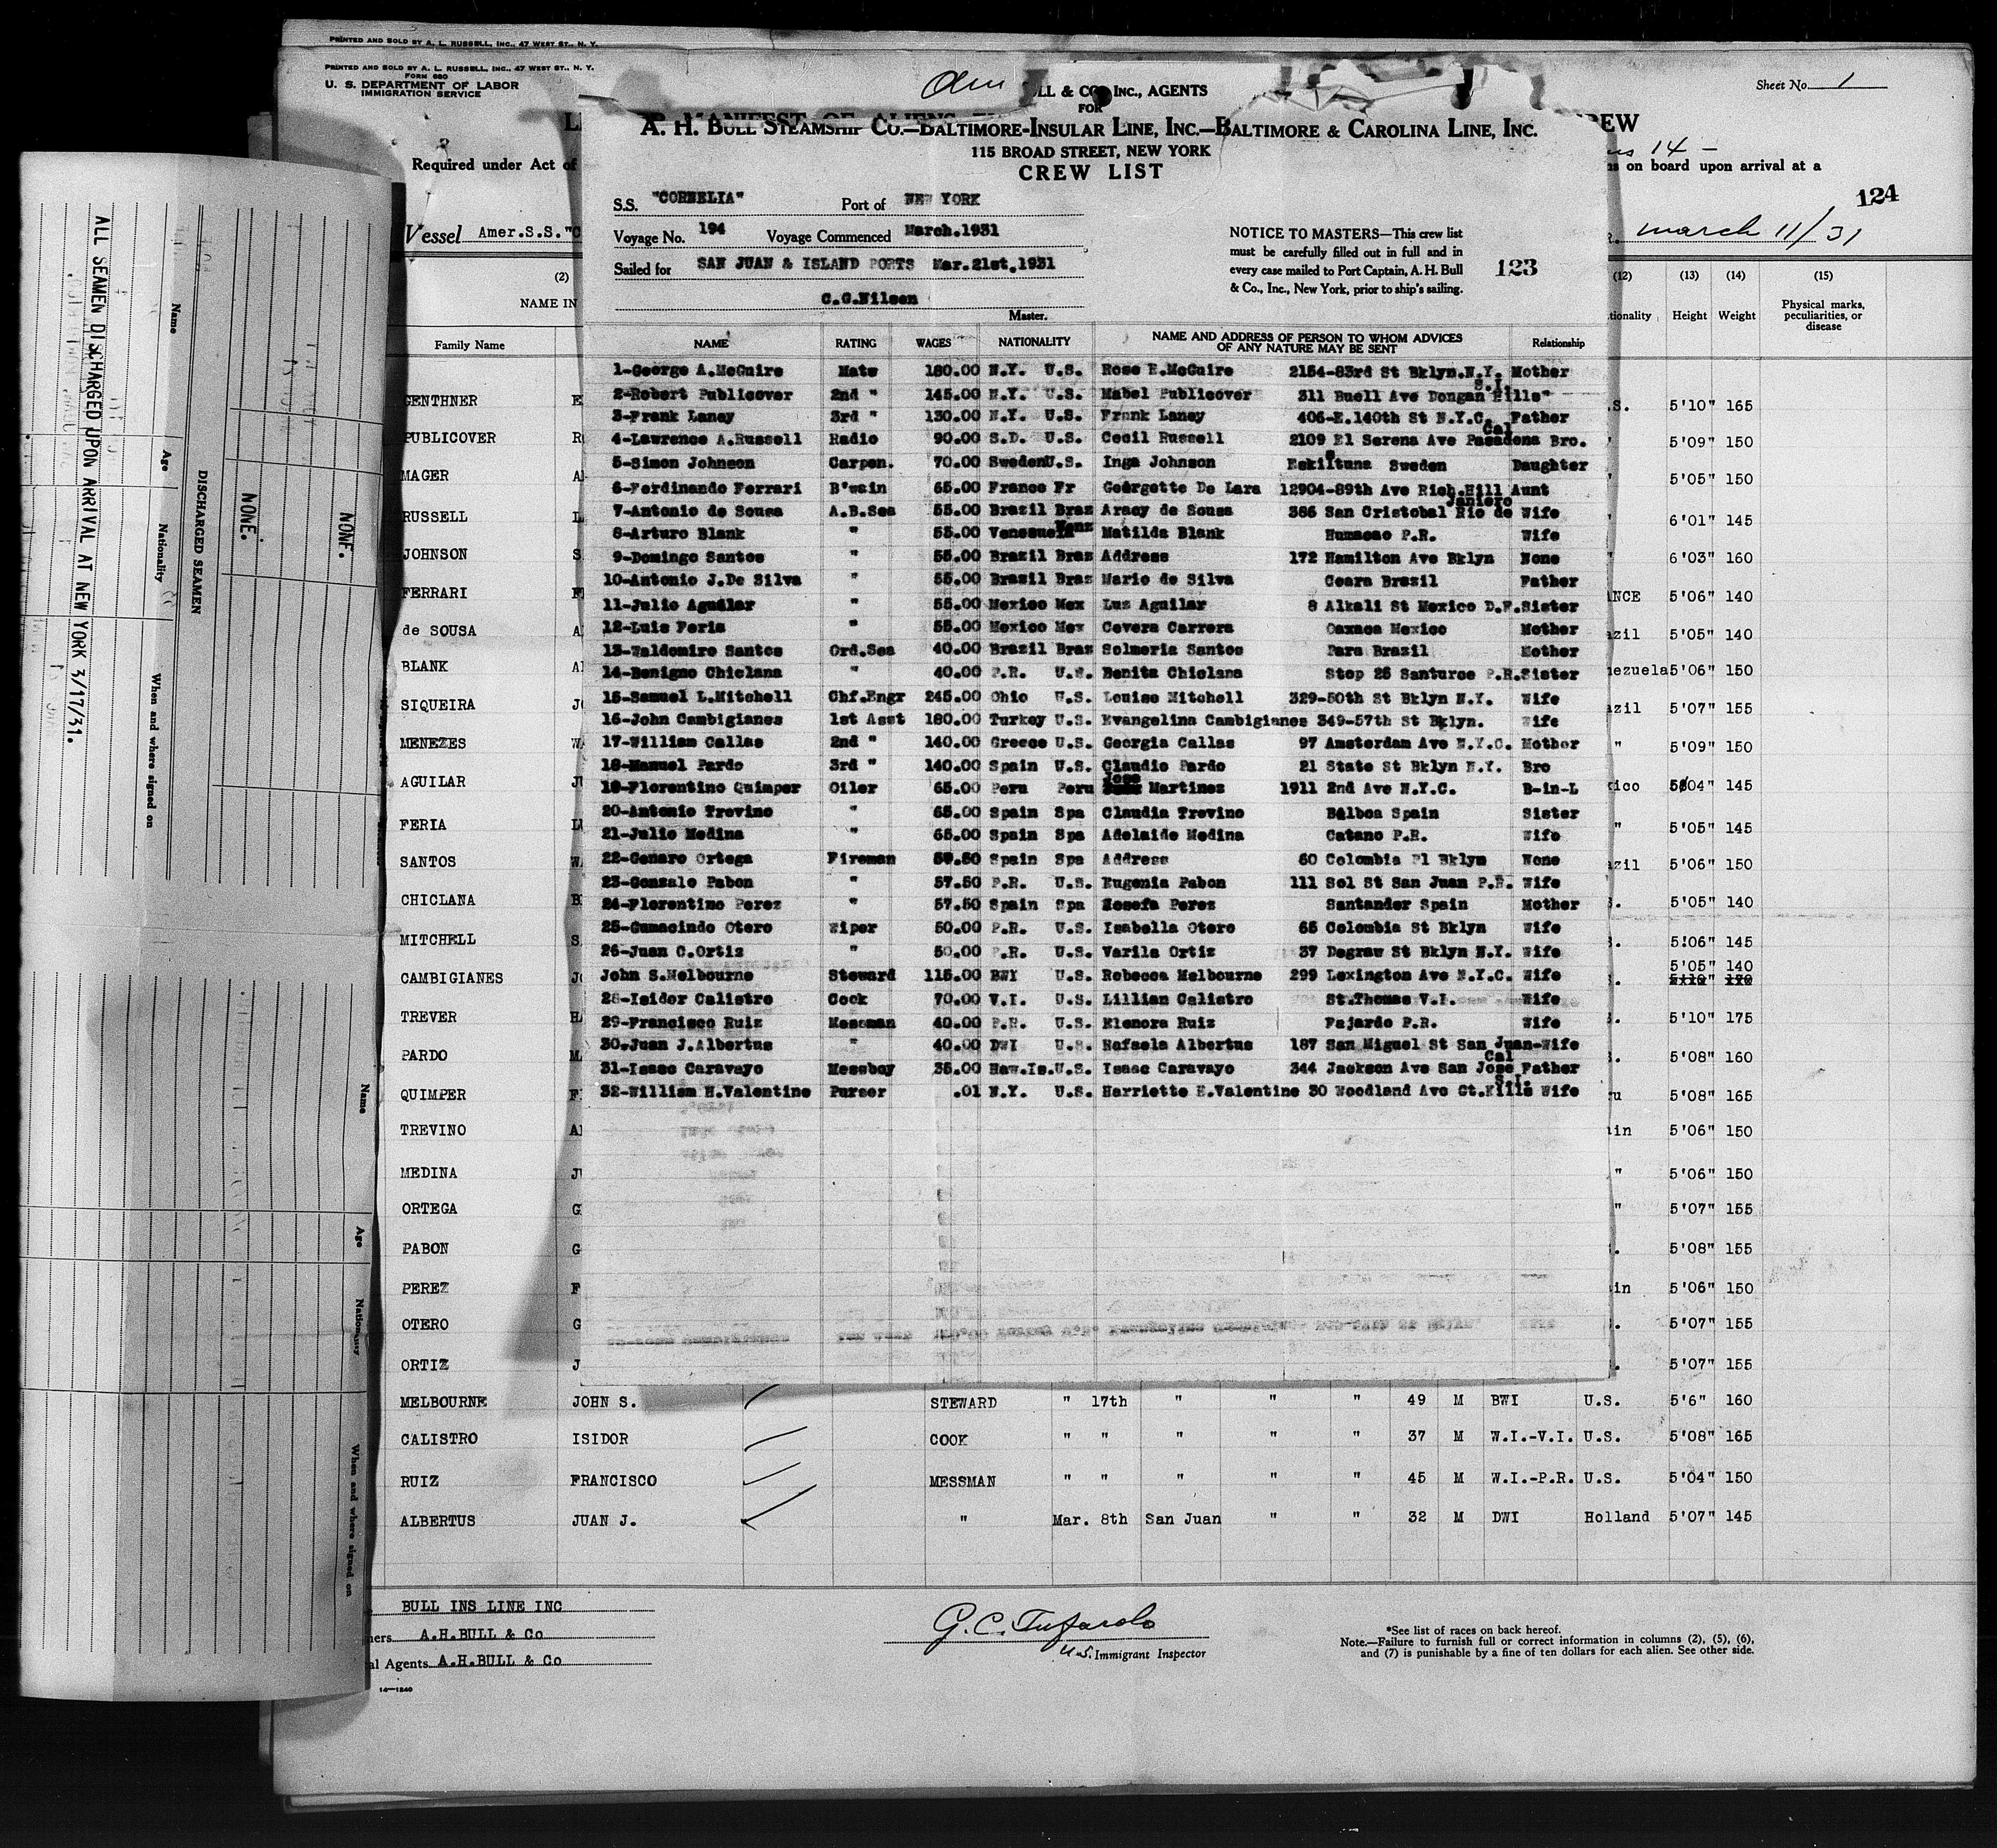 PRINTED AND SOLD BY A. L. RUSSELL, INC., 47 WEST ST., N. Y.
PRINTED AND SOLD BY A. L. RUSSELL, INC., 47 WEST ST., N. Y.
FORM 680
U. S. DEPARTMENT OF LABOR
IMMIGRATION SERVICE
Sheet No. 1
Required under Act of
ns on board upon arrival at a
124
Vessel Amer.S.S."C
march 11/31
(2)
NAME IN
Family Name
(12) (13) (14) (15)
Height Weight Physical marks, peculiarities, or disease
LL & CO., INC., AGENTS
FOR
A. H. BULL STEAMSHIP CO.—BALTIMORE-INSULAR LINE, INC.—BALTIMORE & CAROLINA LINE, INC.
115 BROAD STREET, NEW YORK
CREW LIST
S.S. "CORNELIA" Port of NEW YORK
Voyage No. 194 Voyage Commenced March.1931
Sailed for SAN JUAN & ISLAND PORTS Mar.21st,1931
C.G.Nilsen
Master.
NOTICE TO MASTERS—This crew list
must be carefully filled out in full and in
every case mailed to Port Captain, A. H. Bull
& Co., Inc., New York, prior to ship's sailing.
123
NAME RATING WAGES NATIONALITY NAME AND ADDRESS OF PERSON TO WHOM ADVICES OF ANY NATURE MAY BE SENT Relationship
1-George A.McGuire Mate 180.00 N.Y. U.S. Rose E.McGuire 2154-83rd St Bklyn.N.Y. Mother
2-Robert Publicover 2nd " 145.00 N.Y. U.S. Mabel Publicover 311 Buell Ave Dongan Hills S.I. "
3-Frank Laney 3rd " 130.00 N.Y. U.S. Frank Laney 406-E.140th St N.Y.C. Father
4-Lawrence A.Russell Radio 90.00 S.D. U.S. Cecil Russell 2109 El Serena Ave Pasadena Cal Bro.
5-Simon Johnson Carpen. 70.00 Sweden U.S. Inga Johnson Eskiltuna Sweden Daughter
6-Ferdinando Ferrari B'wain 65.00 France Fr Georgette De Lara 12904-89th Ave Rich.Hill Aunt
7-Antonio de Sousa A.B.Sea 55.00 Brazil Braz Aracy de Sousa 386 San Cristobal Rio de Janiero Wife
8-Arturo Blank " 55.00 Venezuela Venz Matilda Blank Humacao P.R. Wife
9-Domingo Santos " 55.00 Brazil Braz Address 172 Hamilton Ave Bklyn None
10-Antonio J.De Silva " 55.00 Brazil Braz Mario de Silva Ceara Brazil Father
11-Julio Aguilar " 55.00 Mexico Mex Luz Aguilar 8 Alkali St Mexico D.F. Sister
12-Luis Feria " 55.00 Mexico Mex Cevera Carrera Oaxaca Mexico Mother
13-Waldomiro Santos Ord.Sea 40.00 Brazil Braz Solmeria Santos Para Brazil Mother
14-Benigno Chiclana " 40.00 P.R. U.S. Benita Chiclana Stop 26 Santurce P.R. Sister
15-Samuel L.Mitchell Chf.Engr 245.00 Ohio U.S. Louise Mitchell 329-50th St Bklyn N.Y. Wife
16-John Cambigianes 1st Asst 180.00 Turkey U.S. Evangelina Cambigianes 349-57th St Bklyn. Wife
17-William Callas 2nd " 140.00 Greece U.S. Georgia Callas 97 Amsterdam Ave N.Y.C. Mother
18-Manuel Pardo 3rd " 140.00 Spain U.S. Claudio Pardo 21 State St Bklyn N.Y. Bro
19-Florentino Quimper Oiler 65.00 Peru Peru Jose Martinez 1911 2nd Ave N.Y.C. B-in-L
20-Antonio Trevino " 65.00 Spain Spa Claudia Trevino Balboa Spain Sister
21-Julio Medina " 65.00 Spain Spa Adelaide Medina Catano P.R. Wife
22-Genaro Ortega Fireman 50 Spain Spa Address 60 Colombia Pl Bklyn None
23-Gonzalo Pabon " 57.50 P.R. U.S. Eugenia Pabon 111 Sol St San Juan P.R. Wife
24-Florentino Perez " 57.50 Spain Spa Josefa Perez Santander Spain Mother
25-Gumacindo Otero Wiper 50.00 P.R. U.S. Isabella Otero 65 Colombia St Bklyn Wife
26-Juan C.Ortiz " 50.00 P.R. U.S. Varila Ortiz 37 Degraw St Bklyn N.Y. Wife
John S.Melbourne Steward 115.00 BWI U.S. Rebecca Melbourne 299 Lexington Ave N.Y.C. Wife
28-Isidor Calistro Cook 70.00 V.I. U.S. Lillian Calistro St.Thomas V.I. Wife
29-Francisco Ruiz Messman 40.00 P.R. U.S. Elenora Ruiz Fajardo P.R. Wife
30-Juan J.Albertus " 40.00 DWI U.S. Rafaela Albertus 187 San Miguel St San Juan-Wife
31-Isaac Caravayo Messboy 35.00 Haw.Is. U.S. Isaac Caravayo 344 Jackson Ave San Jose Cal Father
32-William H.Valentine Purser .01 N.Y. U.S. Harriette E.Valentine 30 Woodland Ave Gt.Kills S.I. Wife
GENTHNER E .S. 5'10" 165
PUBLICOVER R " 5'09" 150
MAGER A " 5'05" 150
RUSSELL L " 6'01" 145
JOHNSON S " 6'03" 160
FERRARI F NCE 5'06" 140
de SOUSA A azil 5'05" 140
BLANK A nezuela 5'06" 150
SIQUEIRA J azil 5'07" 155
MENEZES W " 5'09" 150
AGUILAR J xico 5'04" 145
FERIA L " 5'05" 145
SANTOS W azil 5'06" 150
CHICLANA B . 5'05" 140
MITCHELL S . 5'06" 145
CAMBIGIANES J . 5'05" 140
TREVER H . 5'10" 175
PARDO M . 5'08" 160
QUIMPER F u 5'08" 165
TREVINO A ain 5'06" 150
MEDINA J " 5'06" 150
ORTEGA G " 5'07" 155
PABON G . 5'08" 155
PEREZ F in 5'06" 150
OTERO G . 5'07" 155
ORTIZ J . 5'07" 155
MELBOURNE JOHN S. STEWARD " 17th " " " 49 M BWI U.S. 5'6" 160
CALISTRO ISIDOR COOK " " " " " 37 M W.I.-V.I. U.S. 5'08" 165
RUIZ FRANCISCO MESSMAN " " " " " 45 M W.I.-P.R. U.S. 5'04" 150
ALBERTUS JUAN J. " Mar. 8th San Juan " " 32 M DWI Holland 5'07" 145
BULL INS LINE INC
ners A.H.BULL & Co
al Agents A.H.BULL & Co
14—1240
U.S. Immigrant Inspector
*See list of races on back hereof.
Note.—Failure to furnish full or correct information in columns (2), (5), (6),
and (7) is punishable by a fine of ten dollars for each alien. See other side.
ALL SEAMEN DISCHARGED UPON ARRIVAL AT NEW YORK 3/17/31.
DISCHARGED SEAMEN
Name Age Nationality When and where signed on
NONE.
NONE.
Name Age Nationality When and where signed on